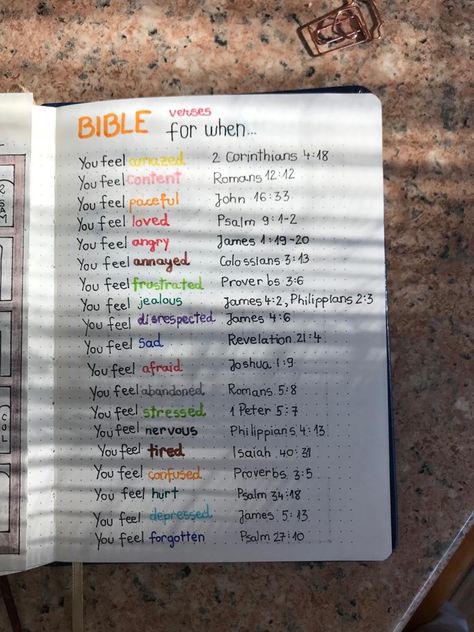 BIBLE verses for when...
You feel amazed 2 Corinthians 4:18
You feel content Romans 12:12
You feel paceful John 16:33
You feel loved Psalm 9:1-2
You feel angry James 1:19-20
You feel annayed Colossians 3:13
You feel frustrated Proverbs 3:6
You feel jealous James 4:2, Philippians 2:3
You feel disrespected James 4:6
You feel sad Revelation 21:4
You feel afraid Joshua 1:9
You feel abandoned Romans 5:8
You feel stressed 1 Peter 5:7
You feel nervous Philippians 4:13
You feel tired Isaiah 40:31
You feel confused Proverbs 3:5
You feel hurt Psalm 34:18
You feel depressed James 5:13
You feel forgotten Psalm 27:10